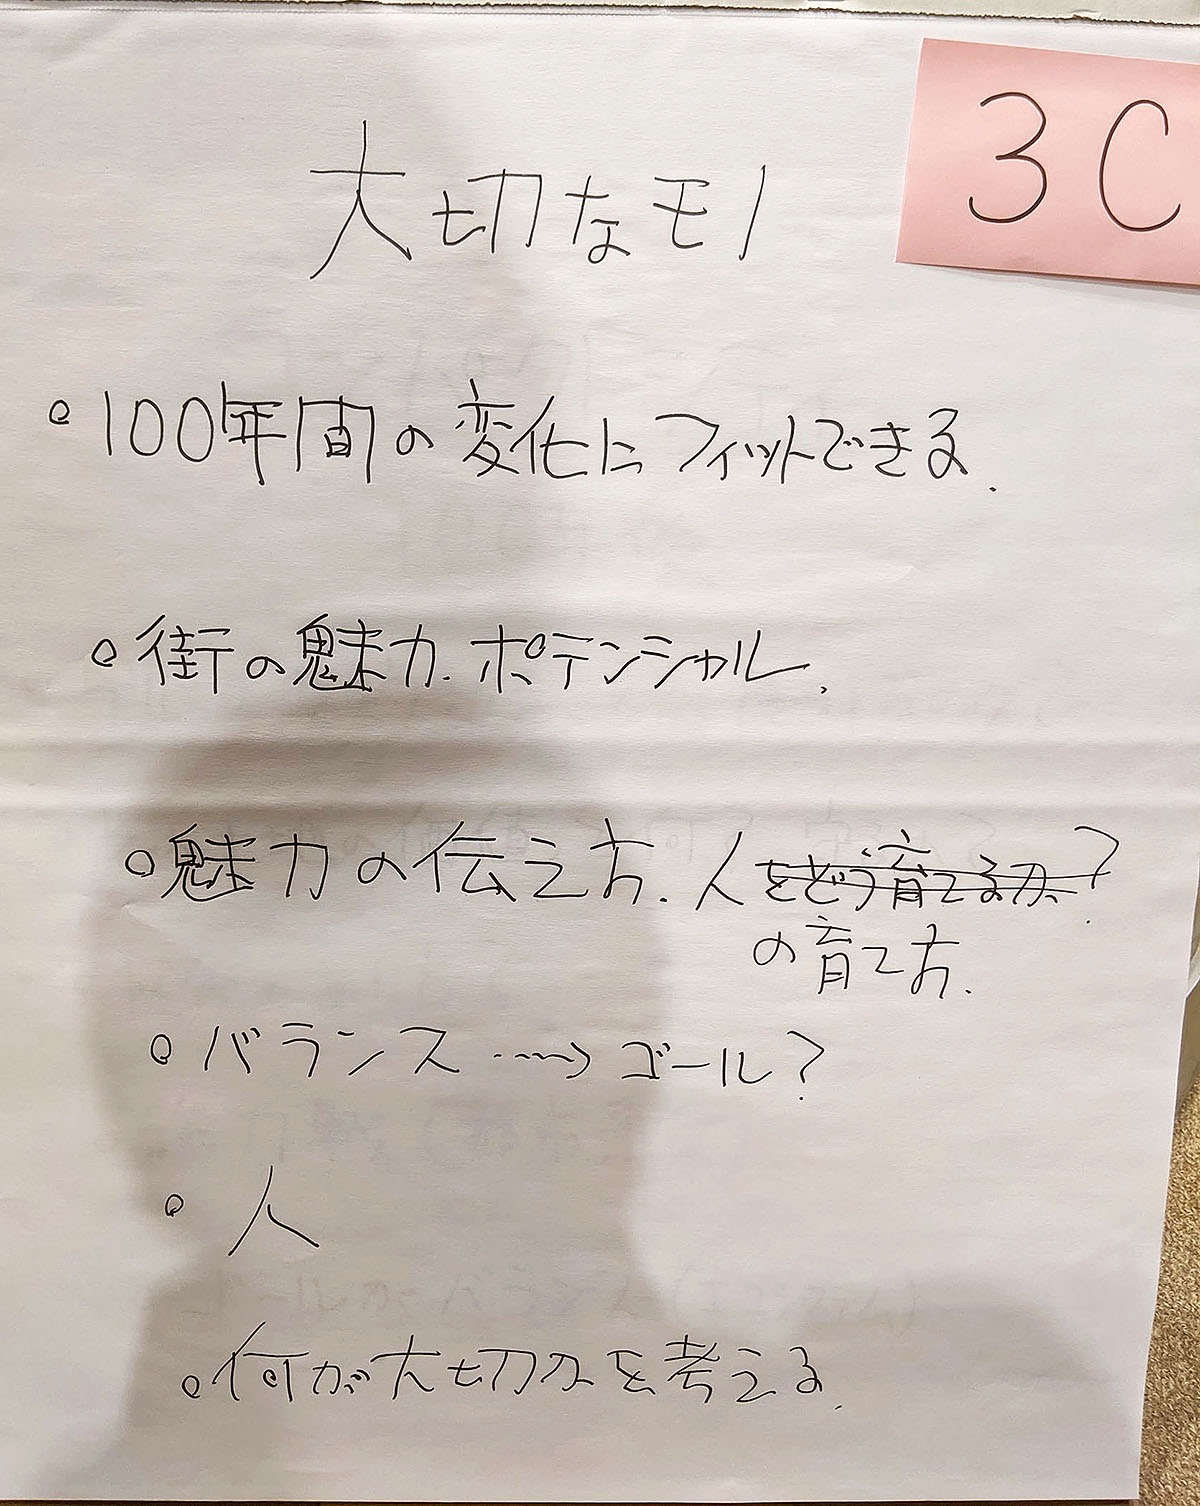 3C
大切なモノ
。100年間の変化にフィットできる.
。街の魅力.ポテンシャル.
。魅力の伝え方.人をどう育てるか?
の育て方.
。バランス ····→ ゴール?
。人
。何が大切かを考える.